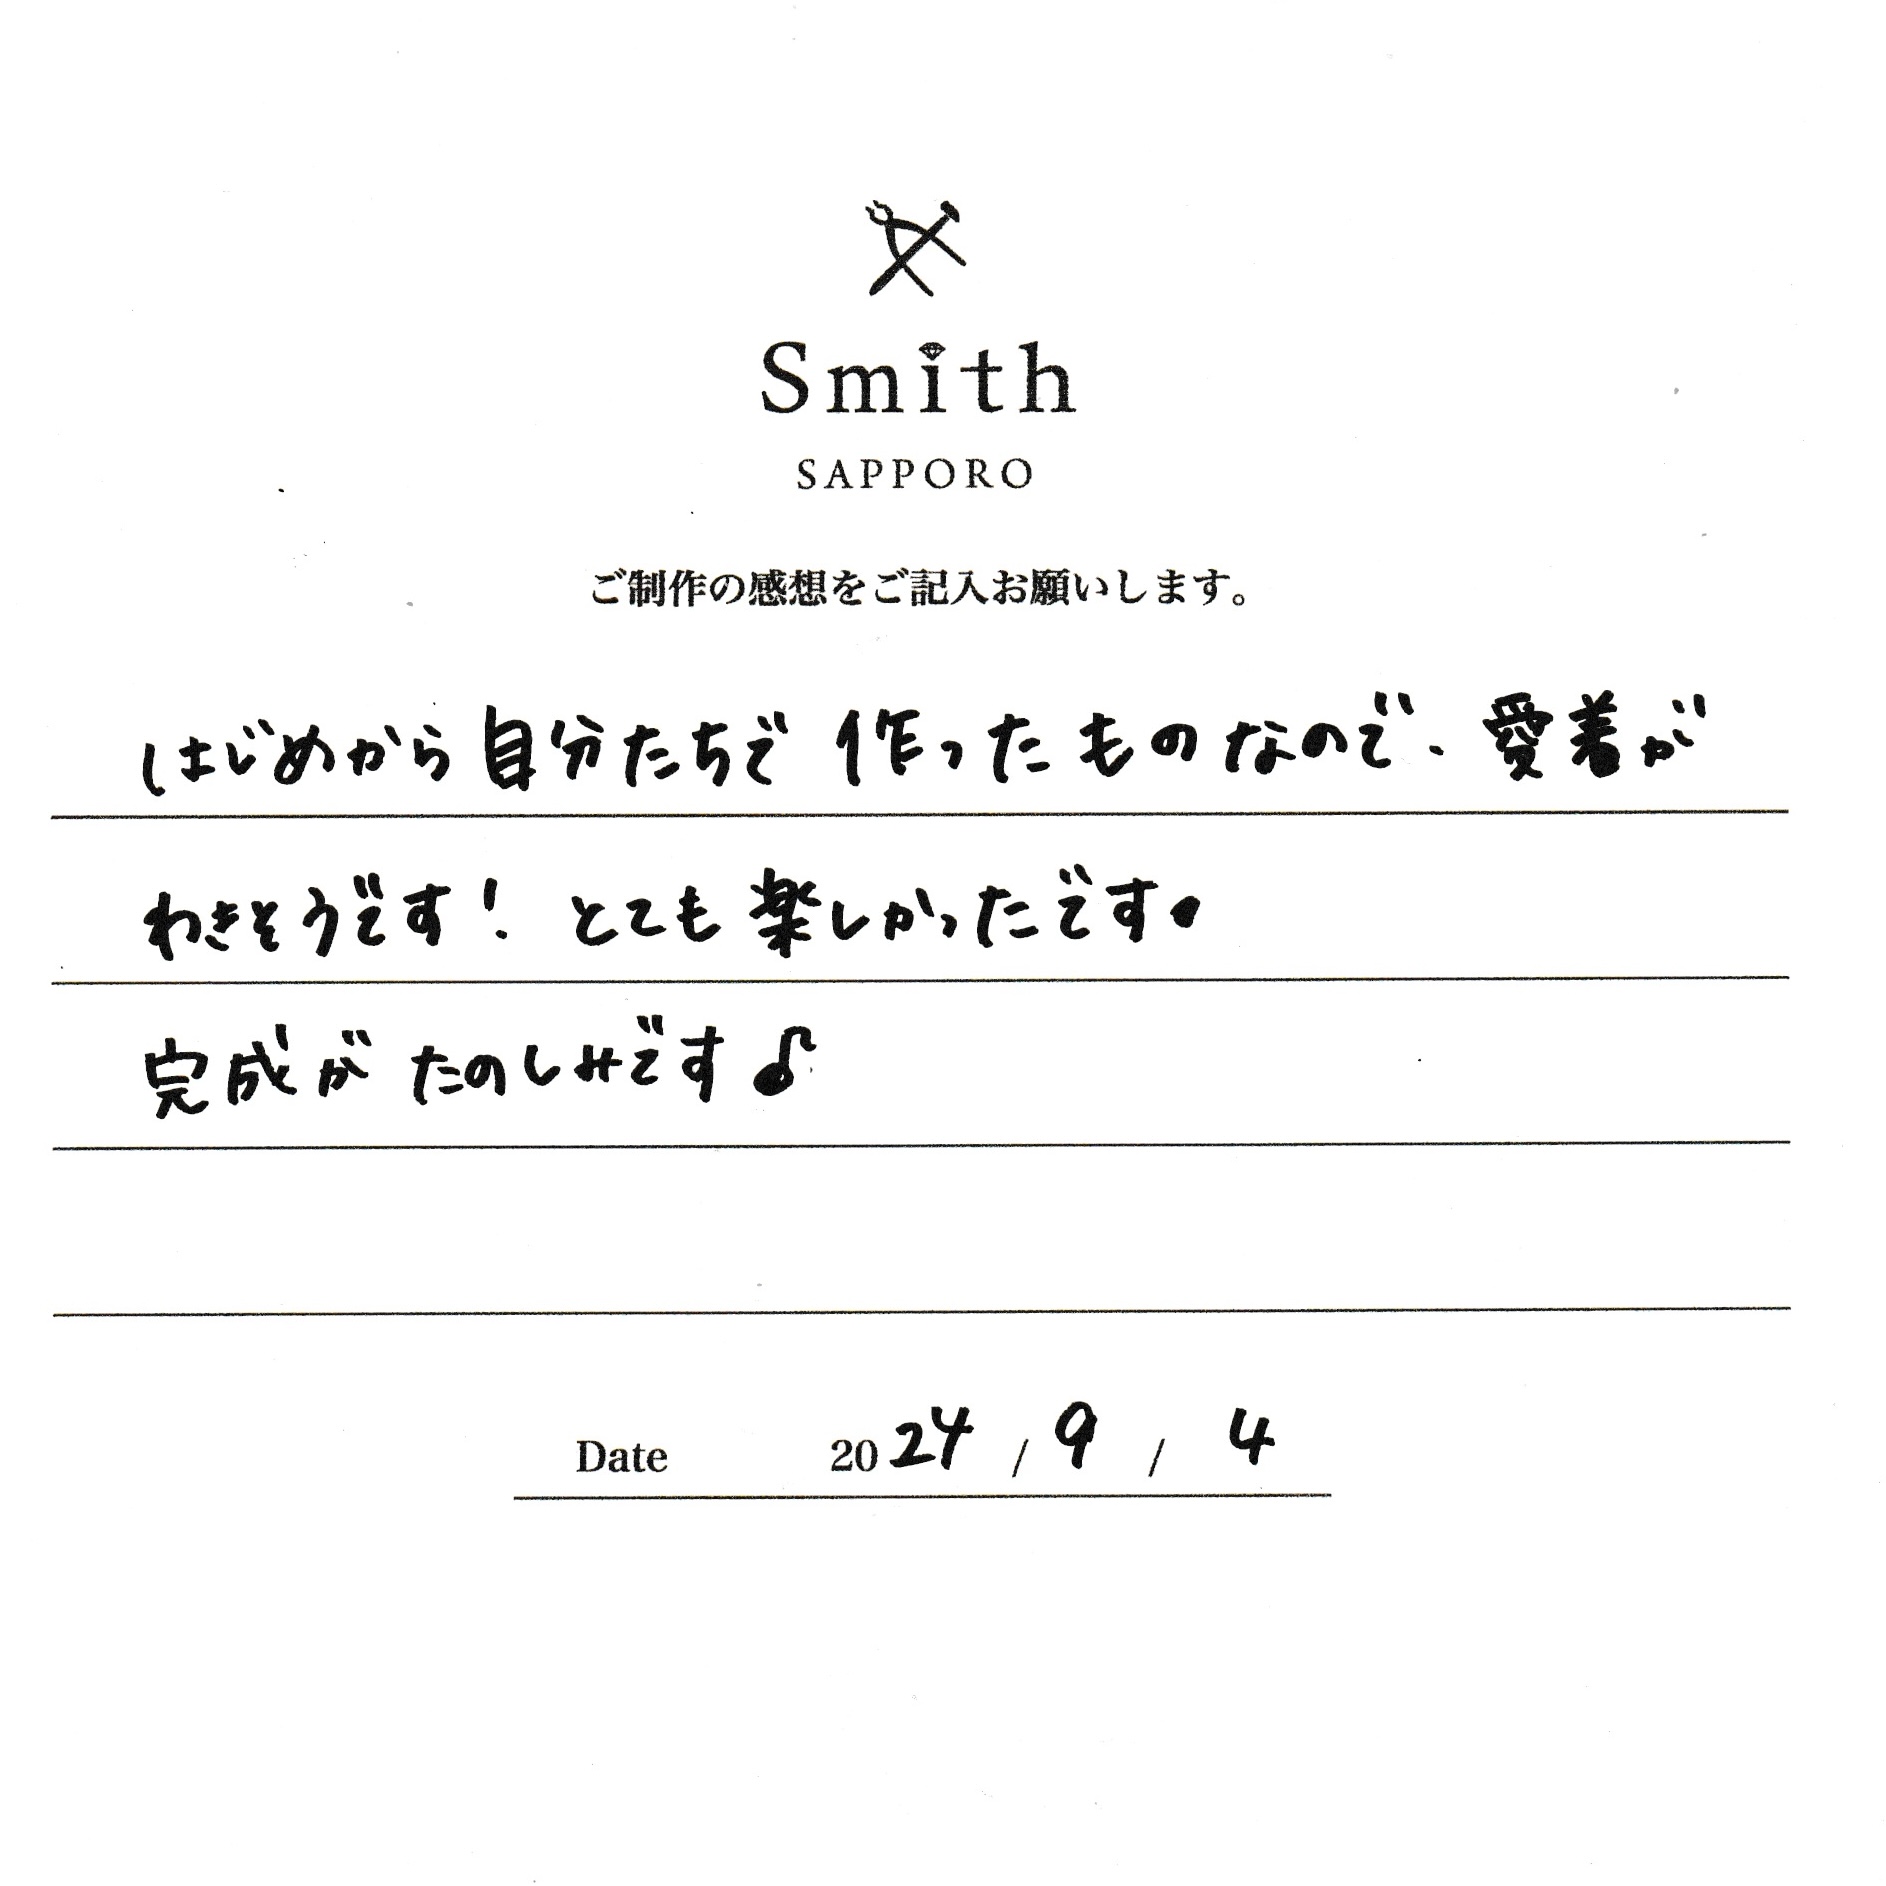 Smith
SAPPORO
ご制作の感想をご記入お願いします。
はじめから自分たちで作ったものなので、愛着が
わきそうです！とても楽しかったです。
完成がたのしみです♪
Date 2024 / 9 / 4